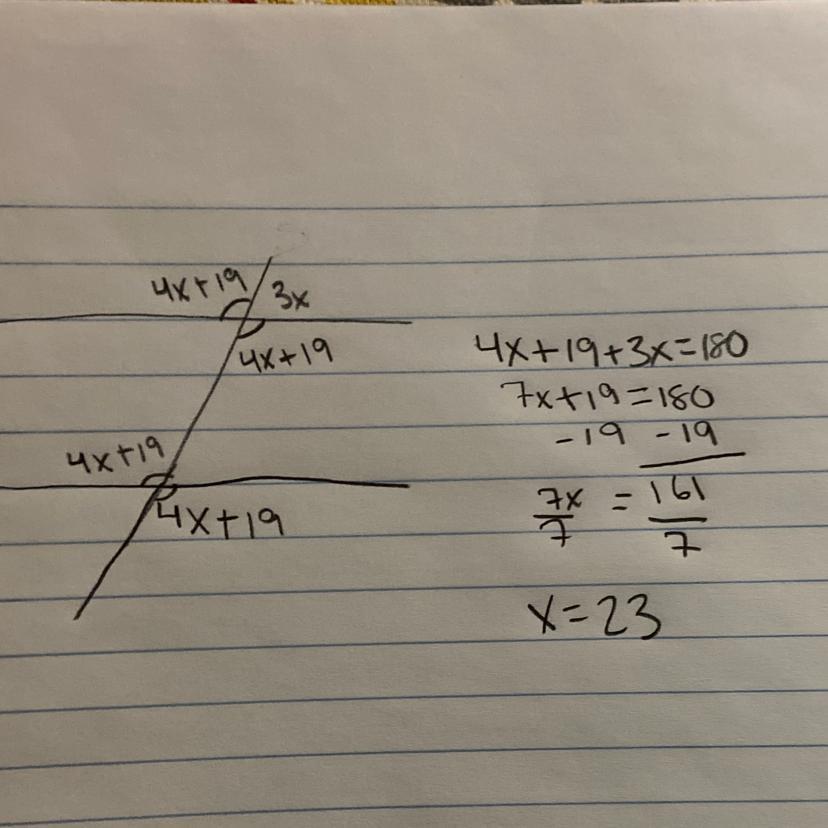 4x+19 3x
4x+19
4x+19
4x+19
4x+19+3x=180
7x+19=180
-19 -19
7x/7 = 161/7
x=23